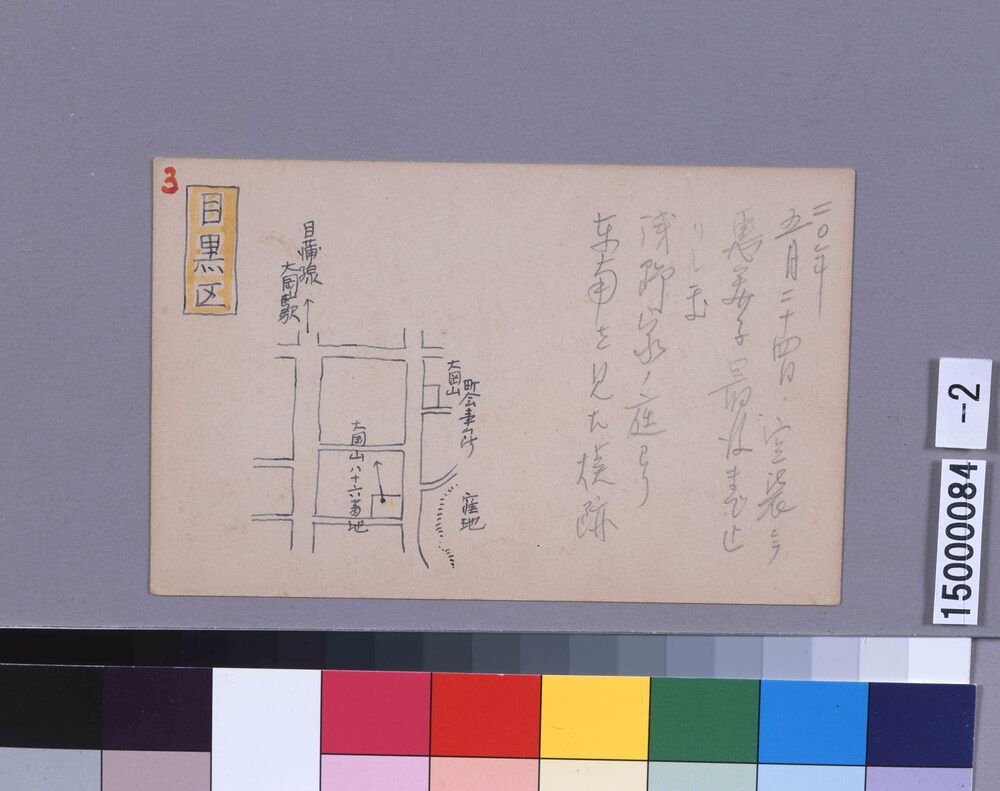 二〇年
五月二十四日、空襲で
恵美子最後まで止
りし家
浅野家ノ庭ヨリ
東南を見た焼跡
3
目黒区
目蒲線
大岡山駅
大岡山
町会事ム所
大岡山八十六番地
窪地
-2
15000084